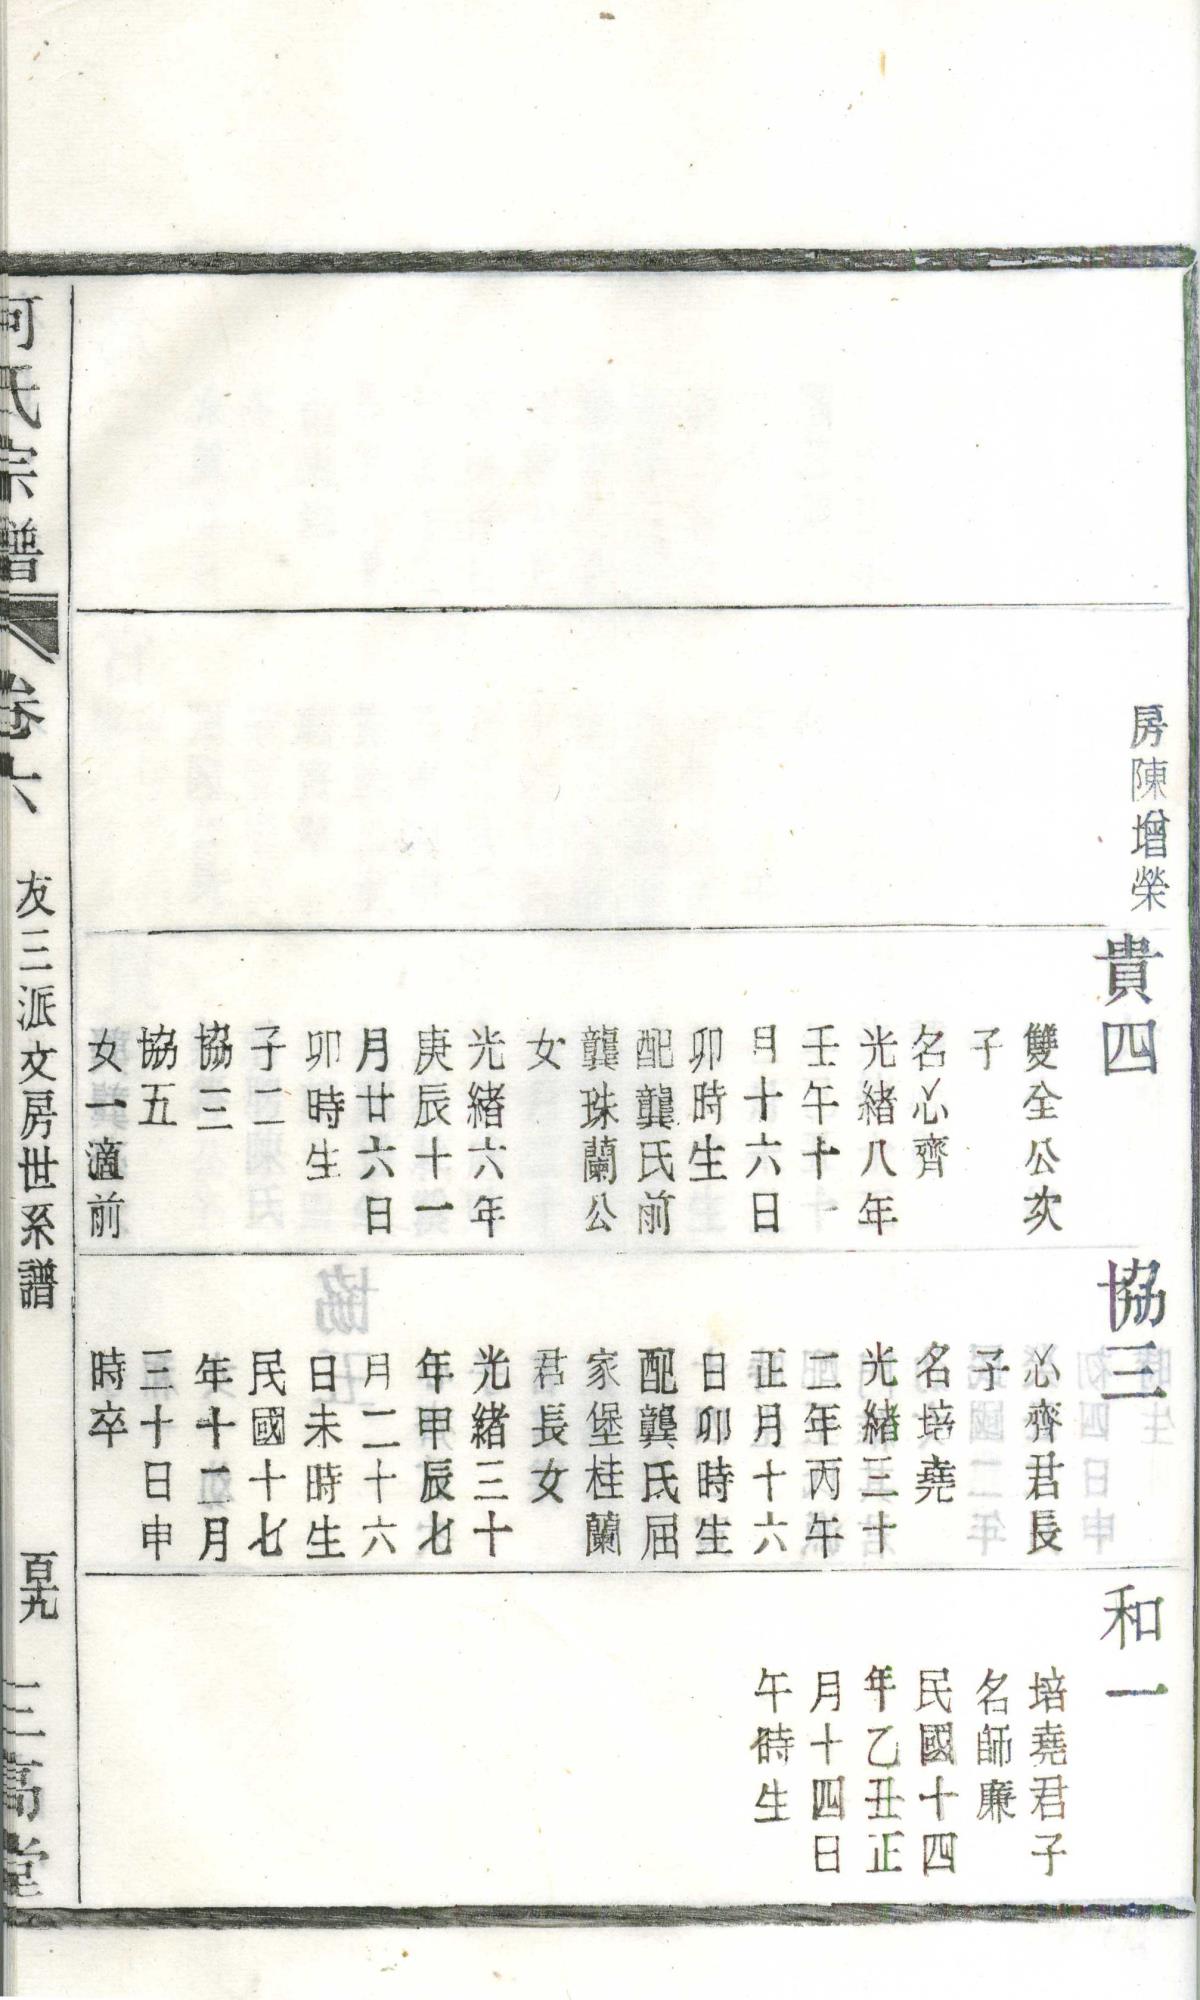 房陳增榮
貴四
雙全公次
子
名心齊
光緒八年
壬午十一
月十六日
卯時生
配龔氏前
龔珠蘭公
女
光緒六年
庚辰十一
月廿六日
卯時生
子二
協三
協五
女一適前
協三
心齊君長
子
名培堯
光緒三十
二年丙午
正月十六
日卯時生
配龔氏屈
家堡桂蘭
君長女
光緒三十
年甲辰七
月二十六
日未時生
民國十七
年十二月
三十日申
時卒
和一
培堯君子
名師廉
民國十四
年乙丑正
月十四日
午時生
何氏宗譜
卷六
友三派文房世系譜
百九
三高堂